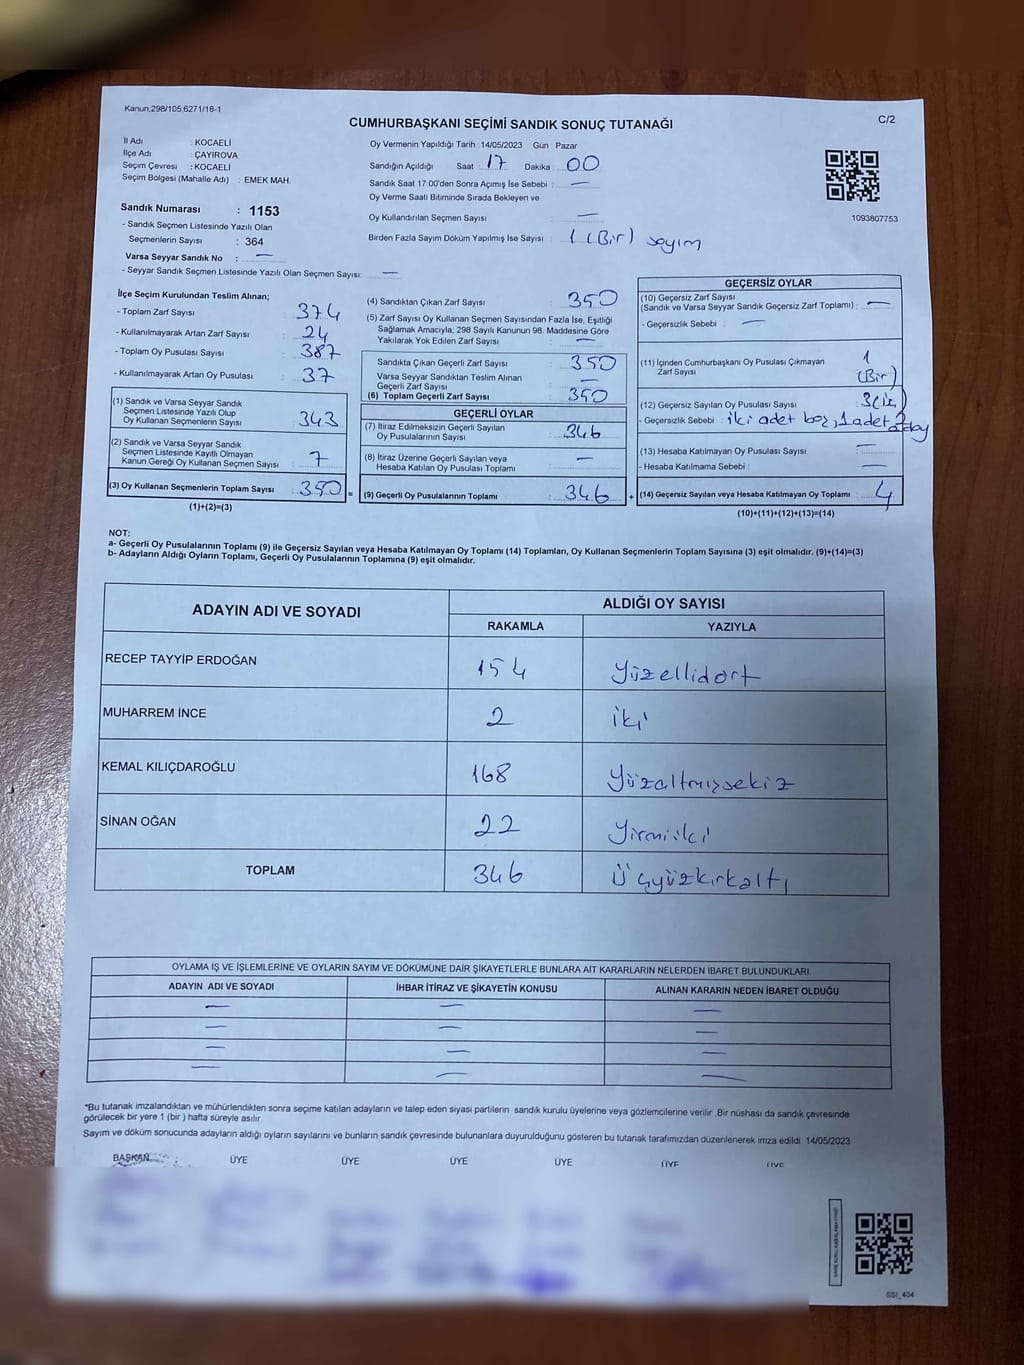 Kanun:298/105;6271/18-1
C/2
CUMHURBAŞKANI SEÇİMİ SANDIK SONUÇ TUTANAĞI
İl Adı : KOCAELİ
İlçe Adı : ÇAYIROVA
Seçim Çevresi : KOCAELİ
Seçim Bölgesi (Mahalle Adı) : EMEK MAH.
Sandık Numarası : 1153
- Sandık Seçmen Listesinde Yazılı Olan
Seçmenlerin Sayısı : 364
Varsa Seyyar Sandık No : —
- Seyyar Sandık Seçmen Listesinde Yazılı Olan Seçmen Sayısı: —
Oy Vermenin Yapıldığı Tarih : 14/05/2023 Gün : Pazar
Sandığın Açıldığı Saat : 17 Dakika : 00
Sandık Saat 17.00'den Sonra Açımış İse Sebebi : —
Oy Verme Saati Bitiminde Sırada Bekleyen ve
Oy Kullandırılan Seçmen Sayısı : —
Birden Fazla Sayım Döküm Yapılmış İse Sayısı : 1 (Bir) sayım
1093807753
İlçe Seçim Kurulundan Teslim Alınan;
- Toplam Zarf Sayısı : 374
- Kullanılmayarak Artan Zarf Sayısı : 24
- Toplam Oy Pusulası Sayısı : 387
- Kullanılmayarak Artan Oy Pusulası : 37
(1) Sandık ve Varsa Seyyar Sandık
Seçmen Listesinde Yazılı Olup
Oy Kullanan Seçmenlerin Sayısı : 343
(2) Sandık ve Varsa Seyyar Sandık
Seçmen Listesinde Kayıtlı Olmayan
Kanun Gereği Oy Kullanan Seçmen Sayısı : 7
(3) Oy Kullanan Seçmenlerin Toplam Sayısı : 350 =
(1)+(2)=(3)
(4) Sandıktan Çıkan Zarf Sayısı : 350
(5) Zarf Sayısı Oy Kullanan Seçmen Sayısından Fazla İse, Eşitliği
Sağlamak Amacıyla, 298 Sayılı Kanunun 98. Maddesine Göre
Yakılarak Yok Edilen Zarf Sayısı : —
Sandıkta Çıkan Geçerli Zarf Sayısı : 350
Varsa Seyyar Sandıktan Teslim Alınan
Geçerli Zarf Sayısı : —
(6) Toplam Geçerli Zarf Sayısı : 350
GEÇERLİ OYLAR
(7) İtiraz Edilmeksizin Geçerli Sayılan
Oy Pusulalarının Sayısı : 346
(8) İtiraz Üzerine Geçerli Sayılan veya
Hesaba Katılan Oy Pusulası Toplamı : —
(9) Geçerli Oy Pusulalarının Toplamı : 346 +
GEÇERSİZ OYLAR
(10) Geçersiz Zarf Sayısı
(Sandık ve Varsa Seyyar Sandık Geçersiz Zarf Toplamı) : —
- Geçersizlik Sebebi : —
(11) İçinden Cumhurbaşkanı Oy Pusulası Çıkmayan
Zarf Sayısı : 1 (Bir)
(12) Geçersiz Sayılan Oy Pusulası Sayısı : 3
- Geçersizlik Sebebi : iki adet boş, 1 adet 2 aday
(13) Hesaba Katılmayan Oy Pusulası Sayısı : —
- Hesaba Katılmama Sebebi : —
(14) Geçersiz Sayılan veya Hesaba Katılmayan Oy Toplamı : 4
(10)+(11)+(12)+(13)=(14)
NOT:
a- Geçerli Oy Pusulalarının Toplamı (9) ile Geçersiz Sayılan veya Hesaba Katılmayan Oy Toplamı (14) Toplamları, Oy Kullanan Seçmenlerin Toplam Sayısına (3) eşit olmalıdır. (9)+(14)=(3)
b- Adayların Aldığı Oyların Toplamı, Geçerli Oy Pusulalarının Toplamına (9) eşit olmalıdır.
ADAYIN ADI VE SOYADI ALDIĞI OY SAYISI
RAKAMLA YAZIYLA
RECEP TAYYİP ERDOĞAN 154 Yüzellidört
MUHARREM İNCE 2 iki
KEMAL KILIÇDAROĞLU 168 Yüzaltmışsekiz
SİNAN OĞAN 22 Yirmiiki
TOPLAM 346 Üçyüzkırkaltı
OYLAMA İŞ VE İŞLEMLERİNE VE OYLARIN SAYIM VE DÖKÜMÜNE DAİR ŞİKAYETLERLE BUNLARA AİT KARARLARIN NELERDEN İBARET BULUNDUKLARI
ADAYIN ADI VE SOYADI İHBAR İTİRAZ VE ŞİKAYETİN KONUSU ALINAN KARARIN NEDEN İBARET OLDUĞU
— — —
— — —
— — —
— — —
"Bu tutanak imzalandıktan ve mühürlendikten sonra seçime katılan adayların ve talep eden siyasi partilerin sandık kurulu üyelerine veya gözlemcilerine verilir. Bir nüshası da sandık çevresinde
görülecek bir yere 1 (bir ) hafta süreyle asılır.
Sayım ve döküm sonucunda adayların aldığı oyların sayılarını ve bunların sandık çevresinde bulunanlara duyurulduğunu gösteren bu tutanak tarafımızdan düzenlenerek imza edildi. 14/05/2023
BAŞKAN ÜYE ÜYE ÜYE ÜYE ÜYE ÜYE
SSI_404